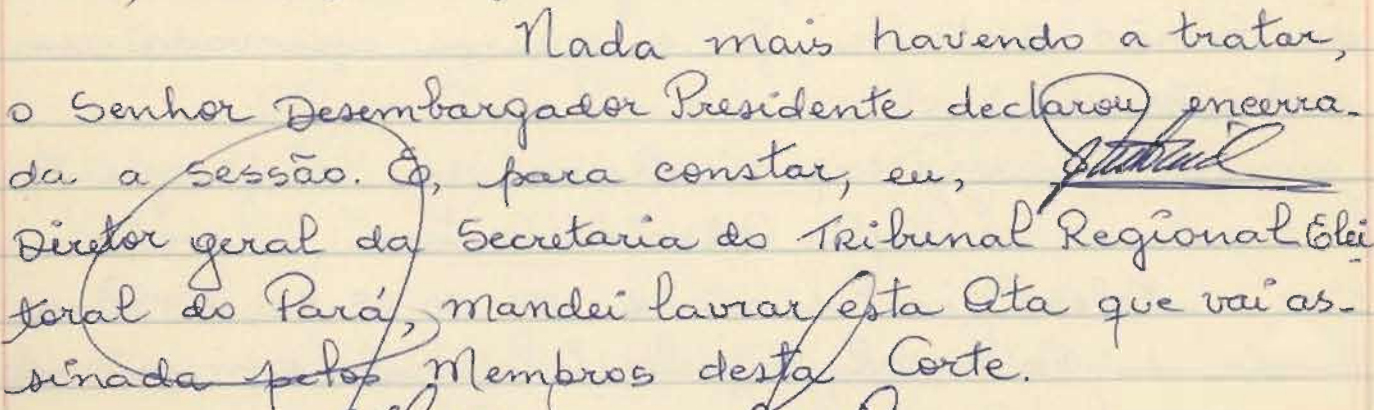 Nada mais havendo a tratar,
o Senhor Desembargador Presidente declarou encerra-
da a sessão. E, para constar, eu,
Diretor geral da Secretaria do Tribunal Regional Elei
toral do Pará, mandei lavrar esta Ata que vai as-
sinada pelos Membros desta Corte.